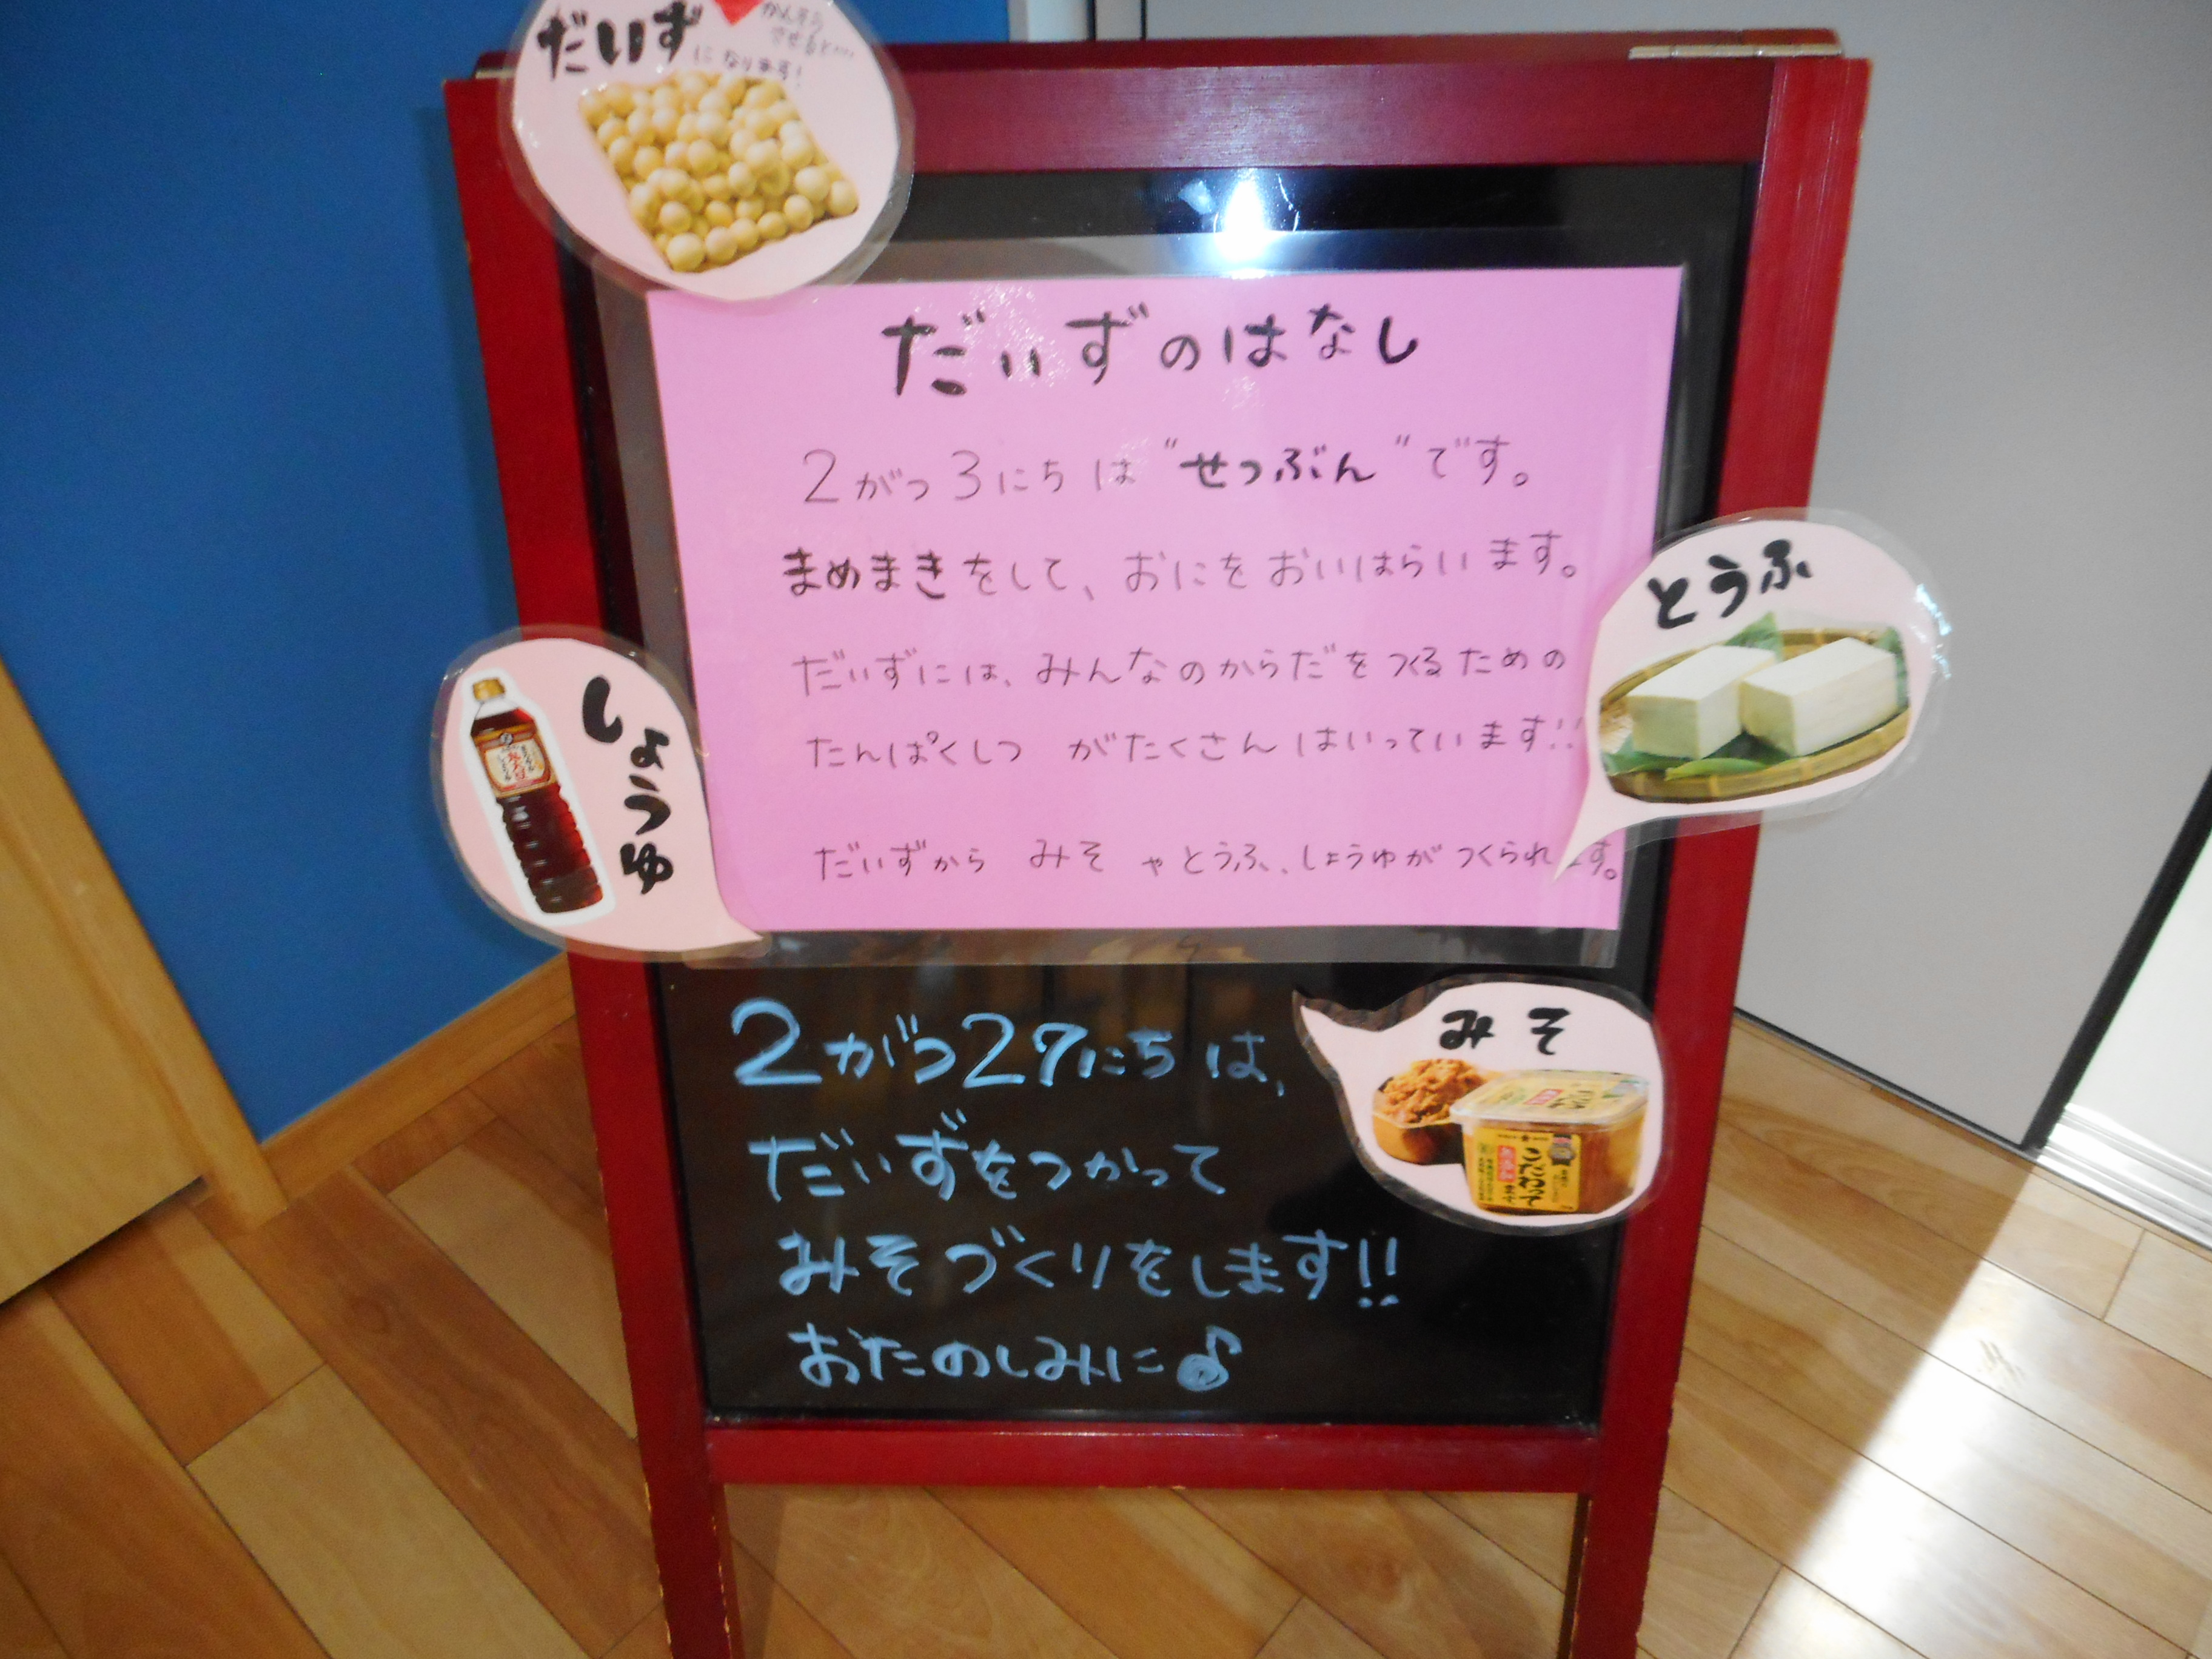 だいず
かんそう
させると…
になります!
だいずのはなし
2がつ3にちは"せつぶん"です。
まめまきをして、おにをおいはらいます。
だいずには、みんなのからだをつくるための
たんぱくしつ がたくさんはいっています!!
だいずから みそ やとうふ、しょうゆがつくられます。
しょうゆ
とうふ
みそ
こだわって
2がつ27にちは、
だいずをつかって
みそづくりをします!!
おたのしみに♪